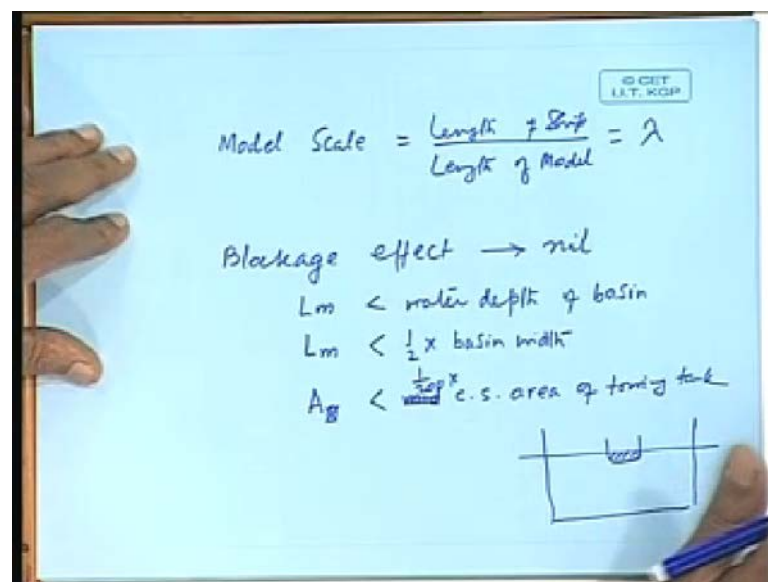 © CET
I.I.T. KGP
Model Scale = Length of Ship / Length of Model = λ
Blockage effect → nil
Lm < water depth of basin
Lm < 1/2 x basin width
A < 1/200 x c.s. area of towing tank